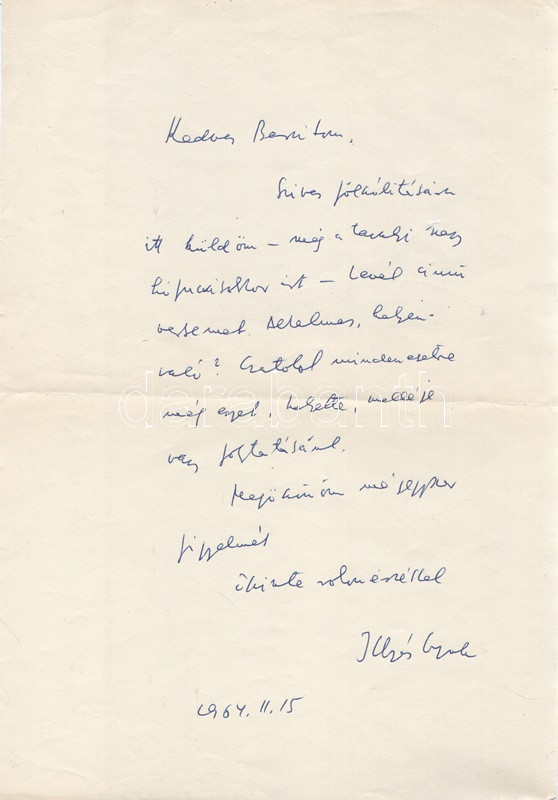 Kedves Barátom,
Szives fölszólitására
itt küldöm – még a tavalyi nagy
irt – Levél cimü
versemet. Alkalmas, helyén-
való? Csatolok mindenesetre
még egyet, helyette, melléje
vagy folytatásául.
Megköszönöm mégegyszer
figyelmét
őszinte rokonérzéssel
Illyés Gyula
1964. II. 15
darabanth